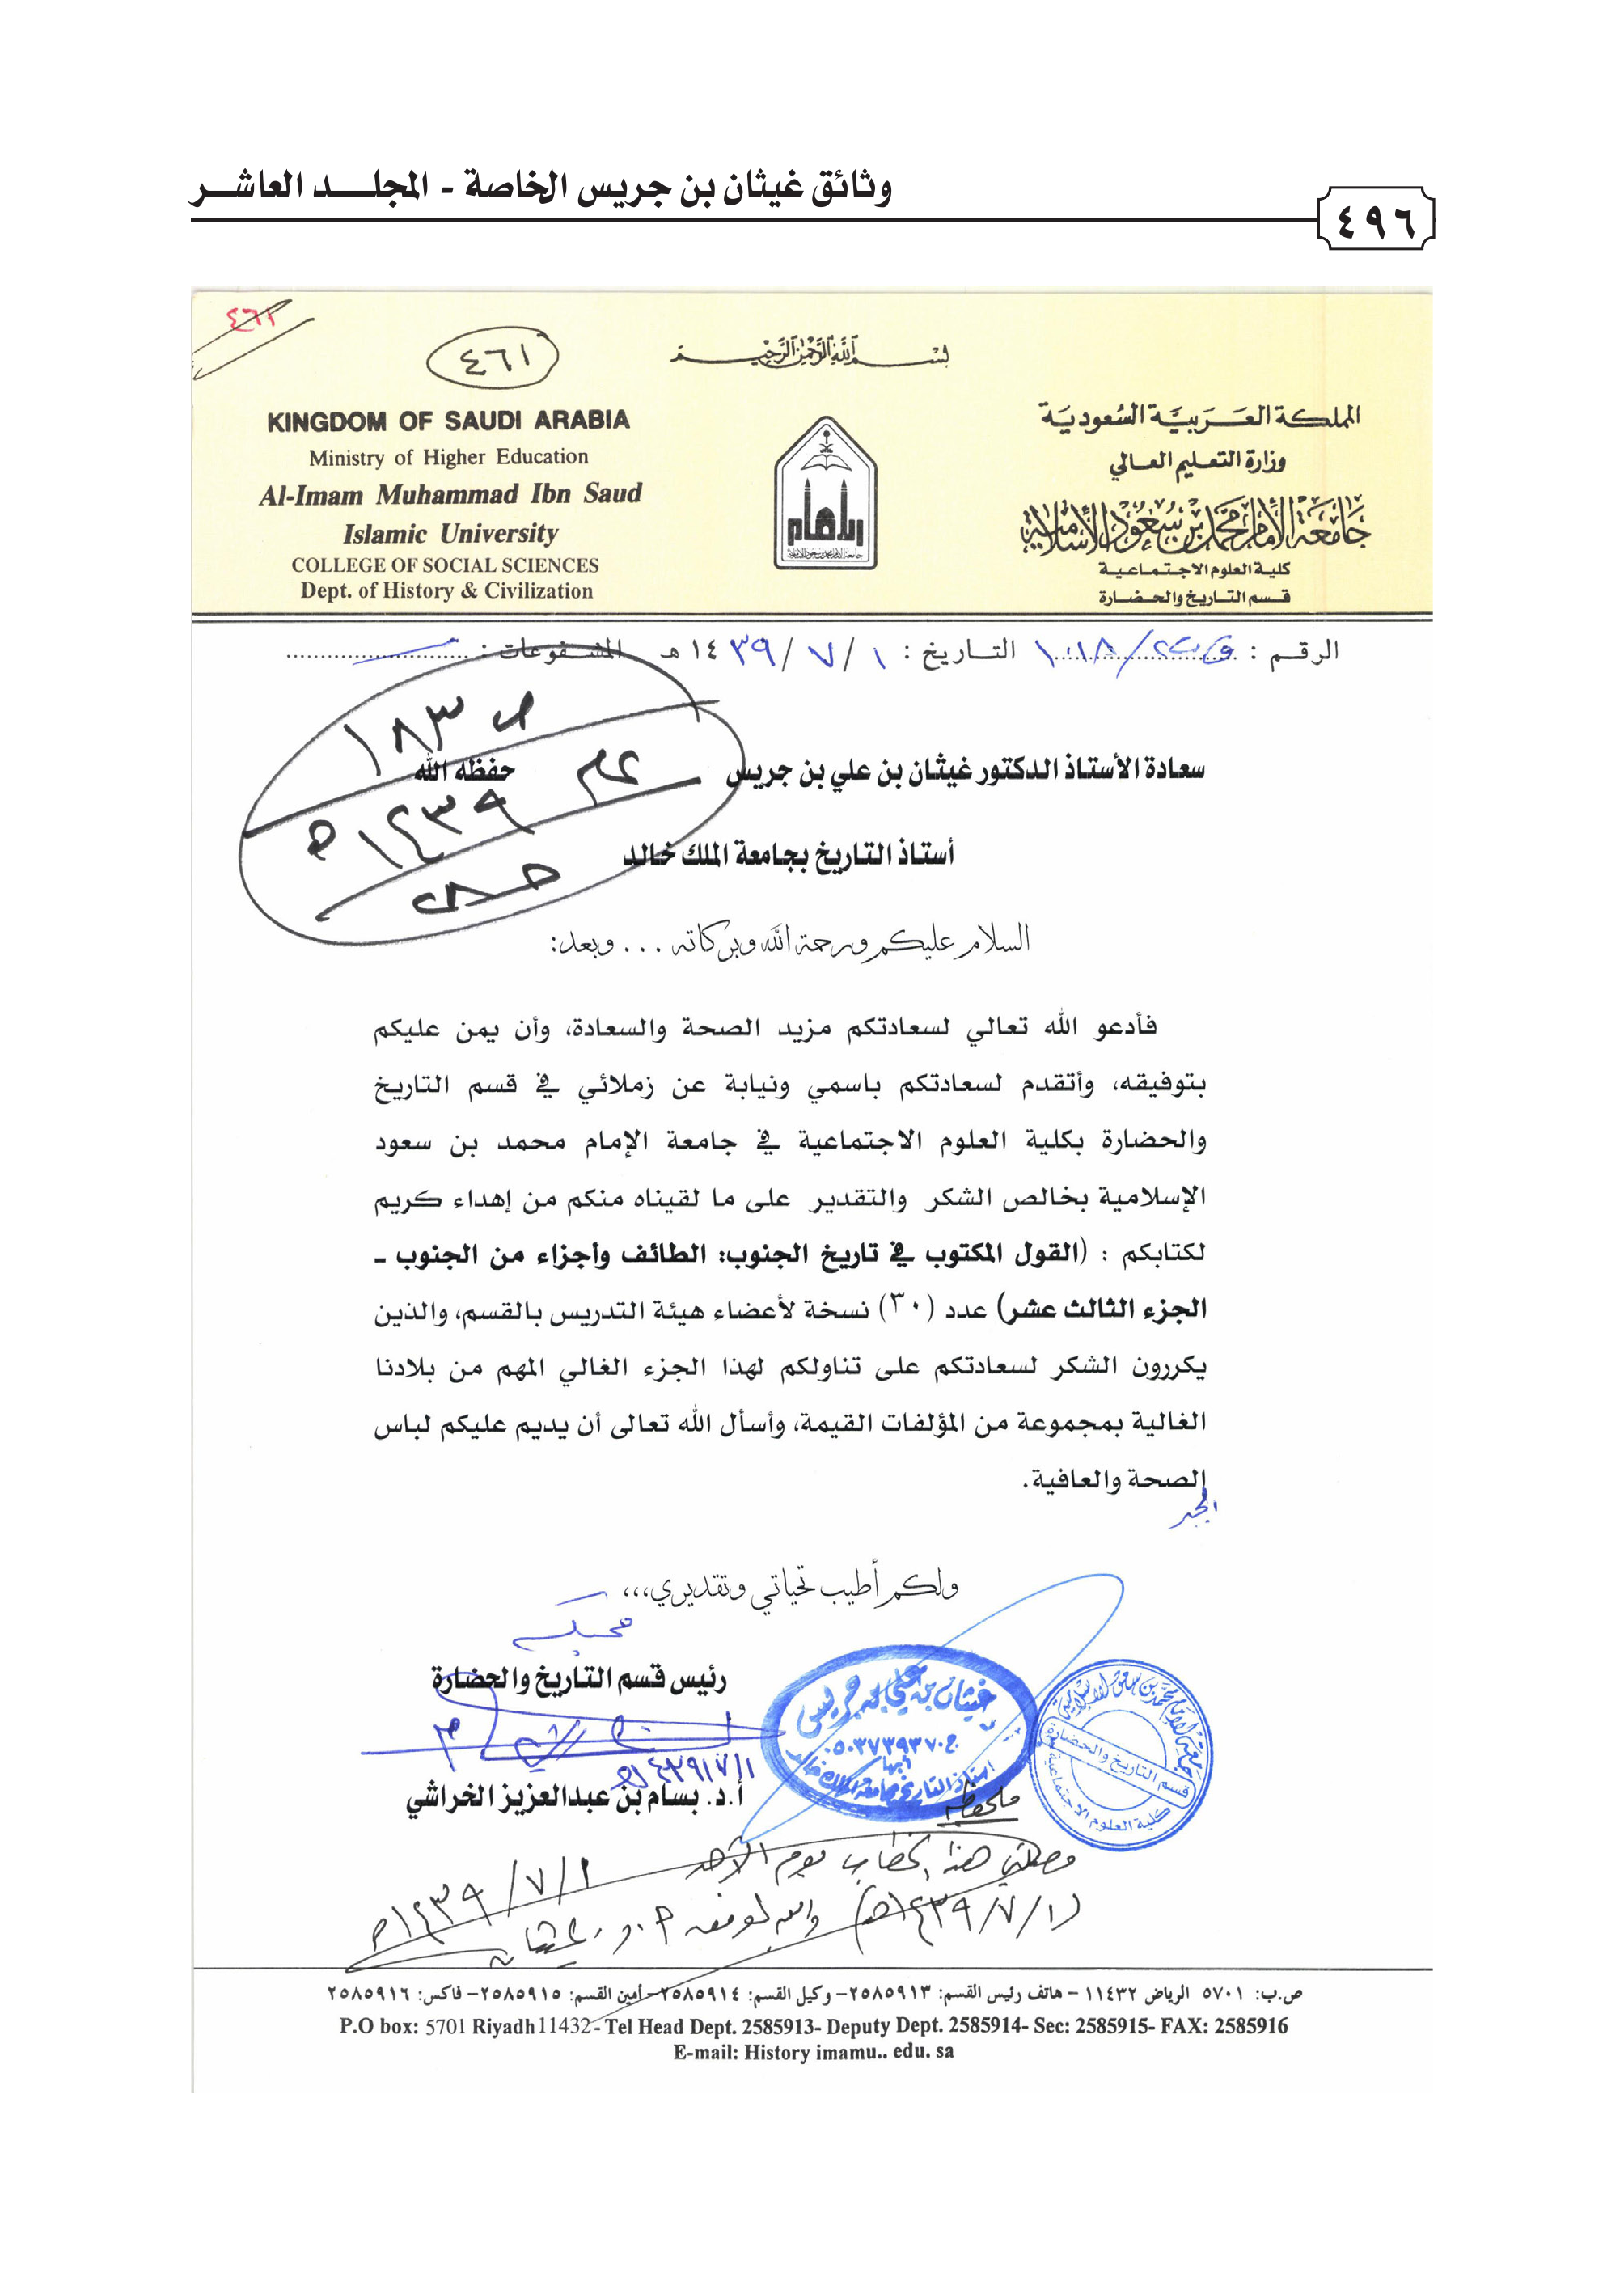 وثائق غيثان بن جريس الخاصة - المجلد العاشر
٤٩٦
٤٦١
٤٦١
بسم الله الرحمن الرحيم
KINGDOM OF SAUDI ARABIA
Ministry of Higher Education
Al-Imam Muhammad Ibn Saud
Islamic University
COLLEGE OF SOCIAL SCIENCES
Dept. of History & Civilization
المملكة العربية السعودية
وزارة التعليم العالي
جامعة الإمام محمد بن سعود الإسلامية
كلية العلوم الاجتماعية
قسم التاريخ والحضارة
الرقم : التاريخ : ١ / ٧ / ١٤٣٩ هـ المشفوعات :
ص ١٨٣
عام
١٤٣٩ هـ
سعادة الأستاذ الدكتور غيثان بن علي بن جريس حفظه الله
أستاذ التاريخ بجامعة الملك خالد
السلام عليكم ورحمة الله وبركاته ... وبعد:
فأدعو الله تعالي لسعادتكم مزيد الصحة والسعادة، وأن يمن عليكم
بتوفيقه، وأتقدم لسعادتكم باسمي ونيابة عن زملائي في قسم التاريخ
والحضارة بكلية العلوم الاجتماعية في جامعة الإمام محمد بن سعود
الإسلامية بخالص الشكر والتقدير على ما لقيناه منكم من إهداء كريم
لكتابكم : (القول المكتوب في تاريخ الجنوب: الطائف وأجزاء من الجنوب ـ
الجزء الثالث عشر) عدد (٣٠) نسخة لأعضاء هيئة التدريس بالقسم، والذين
يكررون الشكر لسعادتكم على تناولكم لهذا الجزء الغالي المهم من بلادنا
الغالية بمجموعة من المؤلفات القيمة، وأسأل الله تعالى أن يديم عليكم لباس
الصحة والعافية.
ولكم أطيب تحياتي وتقديري،،،
محبكم
رئيس قسم التاريخ والحضارة
١٤٣٩/٧/١هـ
أ.د. بسام بن عبدالعزيز الخراشي
د. غيثان بن علي بن جريس
ج ٠٥٠٣٧٣٩٣٧٠
أبها
استاذ التاريخ بجامعة الملك خالد
جامعة الإمام محمد بن سعود الإسلامية
قسم التاريخ والحضارة
كلية العلوم الاجتماعية
ملحوظة
وصلني هذا الخطاب يوم الأحد
(١/٧/١٤٣٩هـ) والله الموفق أ.د. غيثان
١/٧/١٤٣٩هـ
ص.ب: ٥٧٠١ الرياض ١١٤٣٢ - هاتف رئيس القسم: ٢٥٨٥٩١٣- وكيل القسم: ٢٥٨٥٩١٤- أمين القسم: ٢٥٨٥٩١٥- فاكس: ٢٥٨٥٩١٦
P.O box: 5701 Riyadh 11432- Tel Head Dept. 2585913- Deputy Dept. 2585914- Sec: 2585915- FAX: 2585916
E-mail: History imamu.. edu. sa